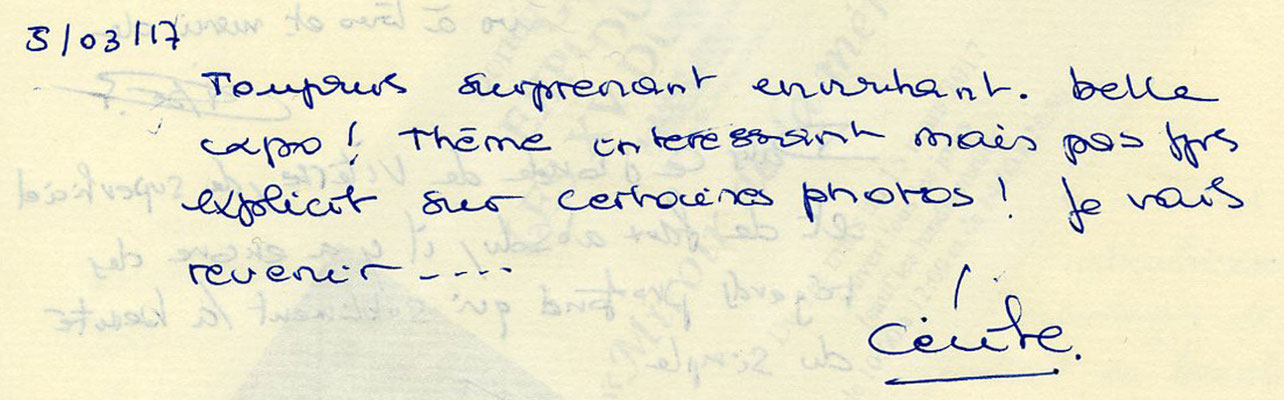 5/03/17
Toujours surprenant enrichant. belle
expo! Thème interessant mais pas tjrs
explicit sur certaines photos! Je vais
revenir -----